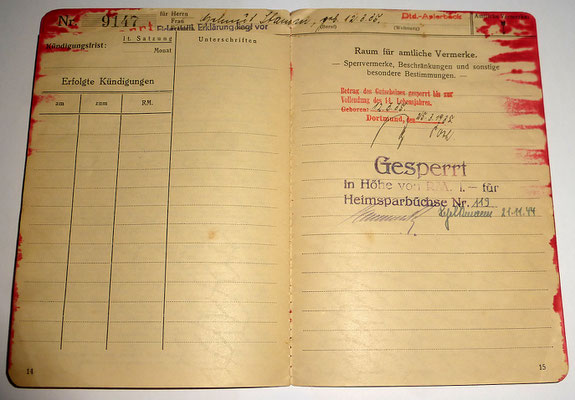 Nr. 9147
für Herrn
Frau
Erklärung liegt vor
geb 12.3.25.
Dtd-Aplerbeck
(Beruf)
(Wohnung)
Kündigungsfrist:
lt. Satzung
Monat
Unterschriften
Erfolgte Kündigungen
am
zum
RM.
14
Raum für amtliche Vermerke.
— Sperrvermerke, Beschränkungen und sonstige
besondere Bestimmungen. —
Betrag des Gutscheines gesperrt bis zur
Vollendung des 14. Lebensjahres.
Geboren:
Dortmund, den
Gesperrt
in Höhe von RM. 1.— für
Heimsparbüchse Nr. 119
21.11.44
15